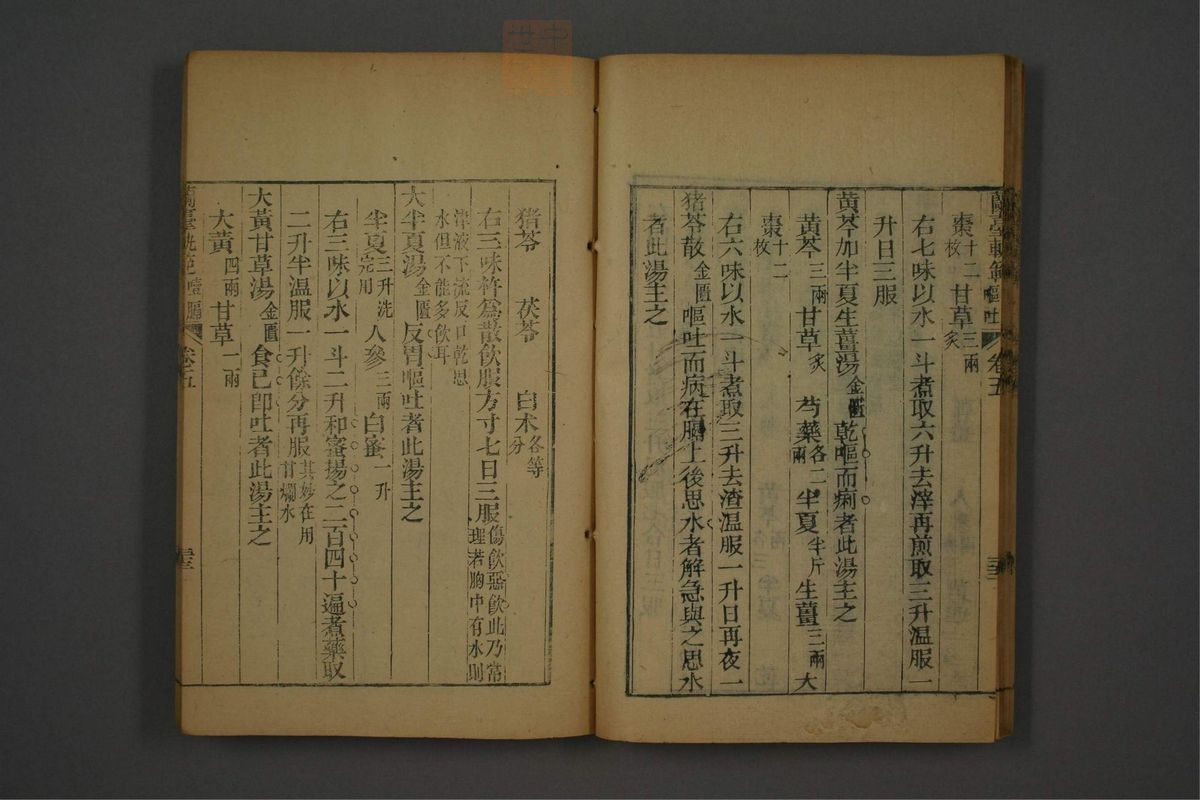 蘭臺軌範 嘔吐 卷五
棗十二枚 甘草三兩炙
右七味以水一斗煮取六升去滓再煎取三升温服一
升日三服
黃芩加半夏生薑湯金匱 乾嘔而痢者此湯主之
黃芩三兩 甘草炙 芍藥各二兩 半夏半斤 生薑三兩 大
棗十二枚
右六味以水一斗煮取三升去渣温服一升日再夜一
猪苓散金匱 嘔吐而病在膈上後思水者解急與之思水
者此湯主之
猪苓 茯苓 白朮各等分
右三味杵爲散飲服方寸七日三服傷飲惡飲此乃常理若胸中有水則
津液下流反口乾思水但不能多飲耳
大半夏湯金匱 反胃嘔吐者此湯主之
半夏三升洗完用 人參三兩 白蜜一升
右三味以水一斗二升和蜜揚之二百四十遍煮藥取
二升半温服一升餘分再服其妙在用甘爛水
大黃甘草湯金匱 食已卽吐者此湯主之
大黃四兩 甘草一兩
蘭臺軌範 噎膈 卷五